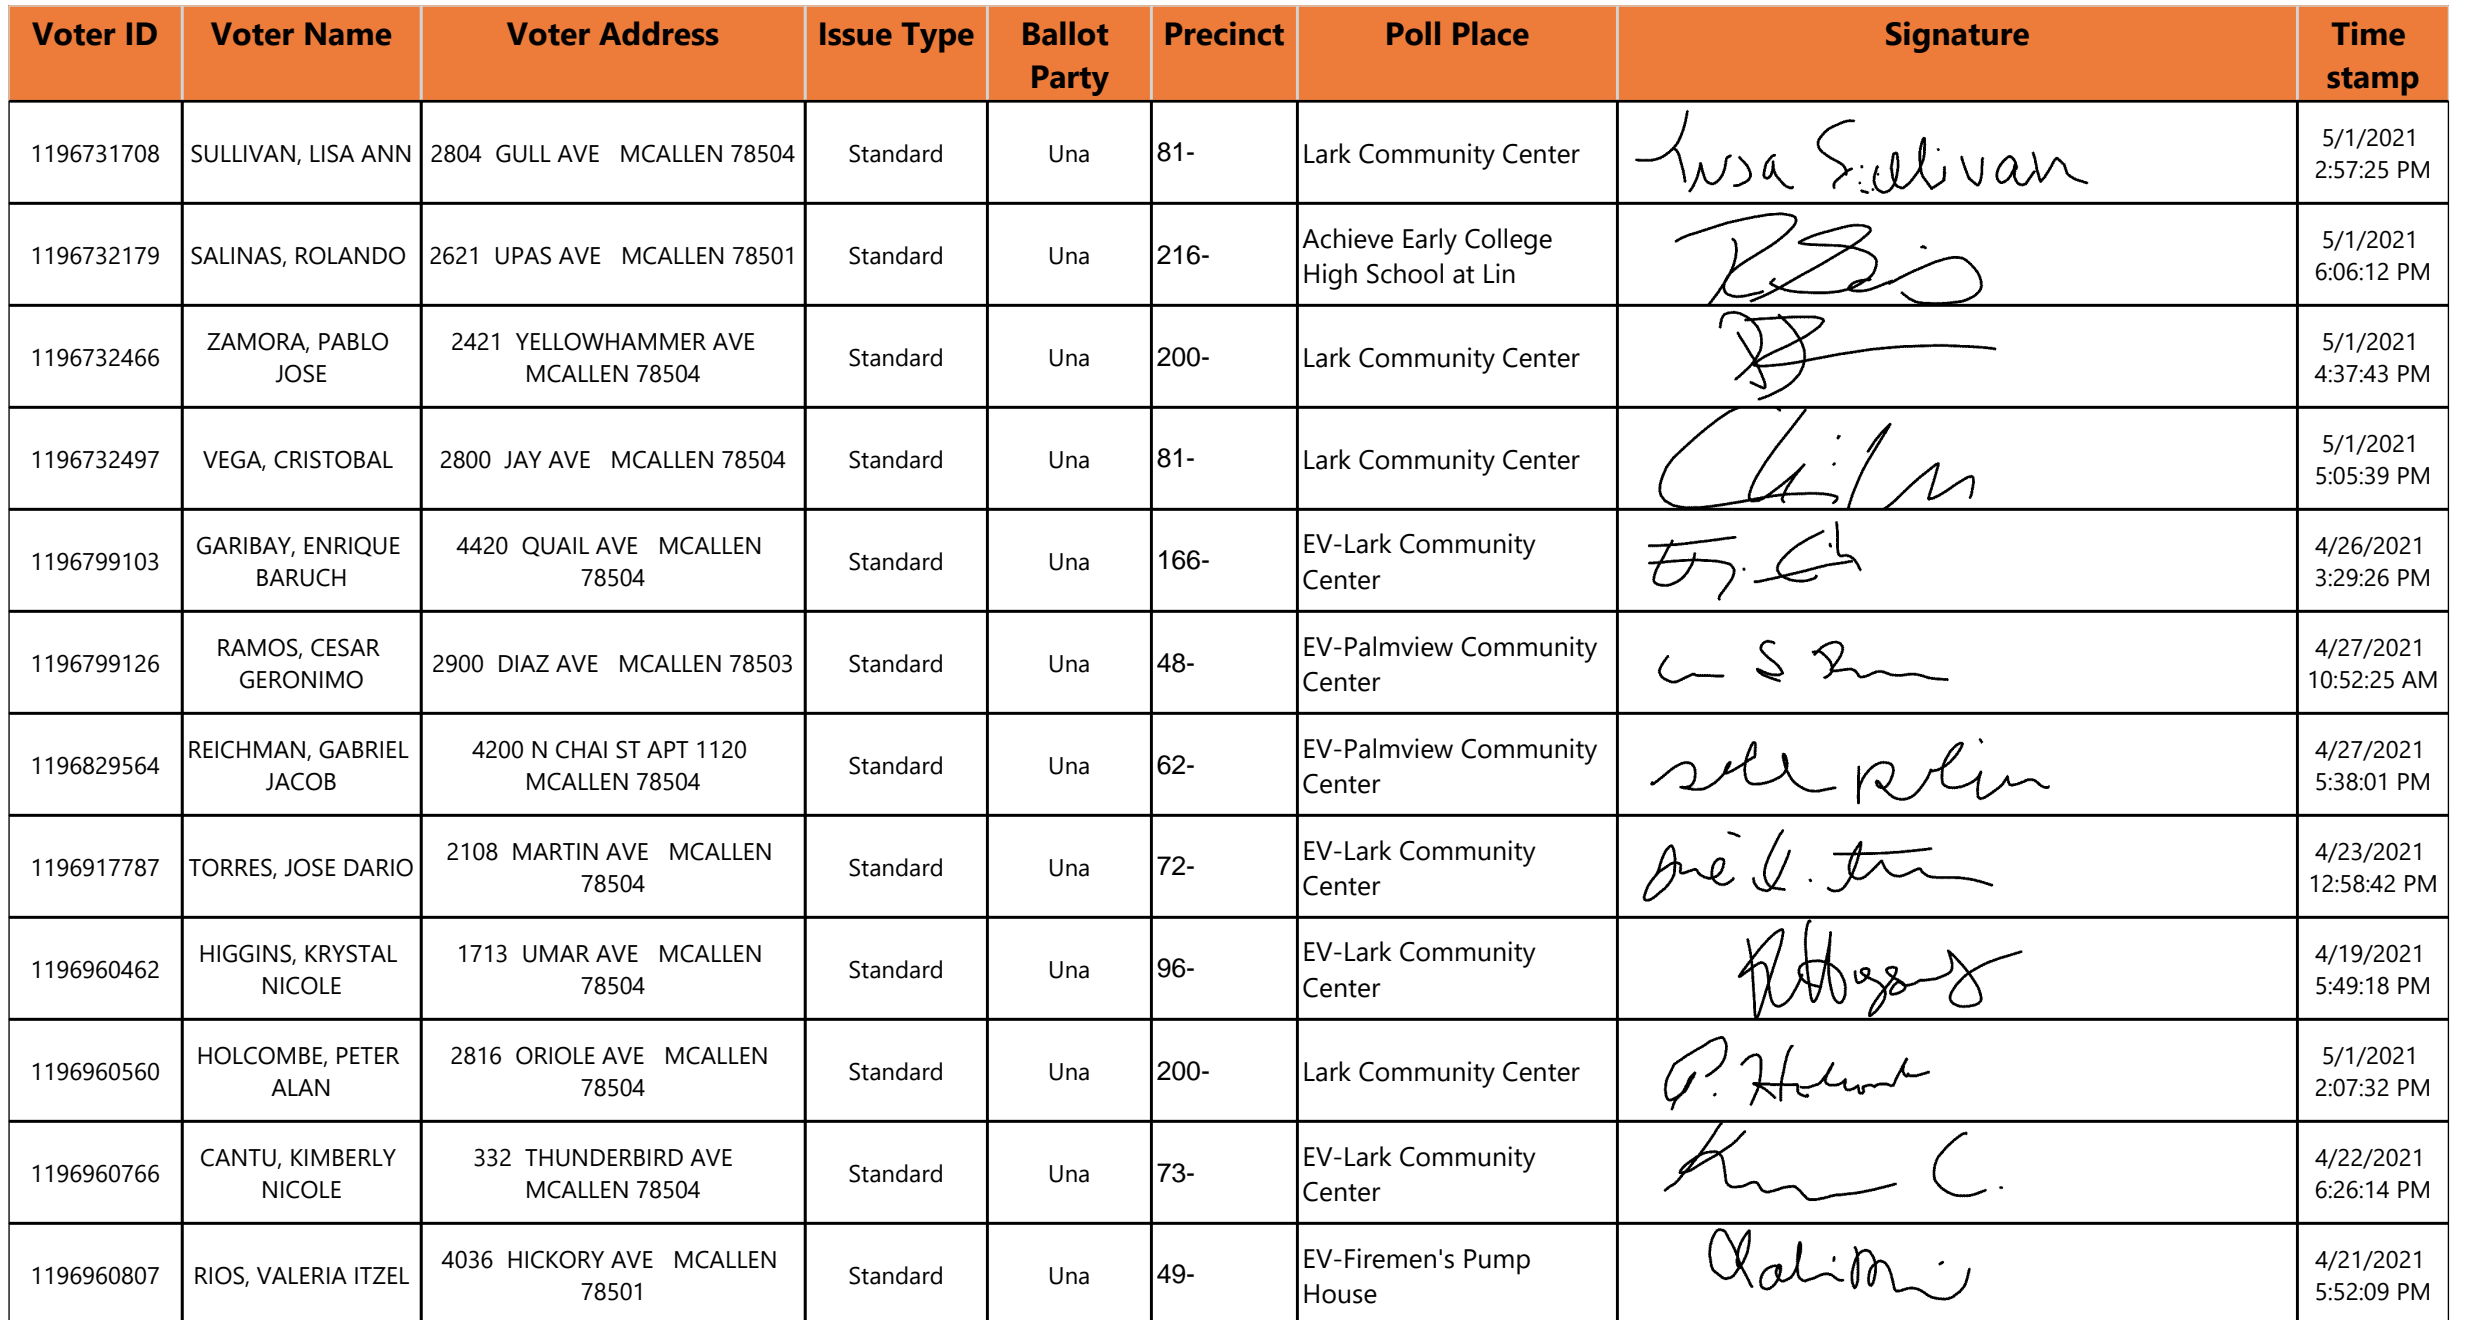 Voter ID Voter Name Voter Address Issue Type Ballot Party Precinct Poll Place Signature Time stamp
1196731708 SULLIVAN, LISA ANN 2804 GULL AVE MCALLEN 78504 Standard Una 81- Lark Community Center Lisa Sullivan 5/1/2021 2:57:25 PM
1196732179 SALINAS, ROLANDO 2621 UPAS AVE MCALLEN 78501 Standard Una 216- Achieve Early College High School at Lin 5/1/2021 6:06:12 PM
1196732466 ZAMORA, PABLO JOSE 2421 YELLOWHAMMER AVE MCALLEN 78504 Standard Una 200- Lark Community Center 5/1/2021 4:37:43 PM
1196732497 VEGA, CRISTOBAL 2800 JAY AVE MCALLEN 78504 Standard Una 81- Lark Community Center 5/1/2021 5:05:39 PM
1196799103 GARIBAY, ENRIQUE BARUCH 4420 QUAIL AVE MCALLEN 78504 Standard Una 166- EV-Lark Community Center 4/26/2021 3:29:26 PM
1196799126 RAMOS, CESAR GERONIMO 2900 DIAZ AVE MCALLEN 78503 Standard Una 48- EV-Palmview Community Center 4/27/2021 10:52:25 AM
1196829564 REICHMAN, GABRIEL JACOB 4200 N CHAI ST APT 1120 MCALLEN 78504 Standard Una 62- EV-Palmview Community Center 4/27/2021 5:38:01 PM
1196917787 TORRES, JOSE DARIO 2108 MARTIN AVE MCALLEN 78504 Standard Una 72- EV-Lark Community Center 4/23/2021 12:58:42 PM
1196960462 HIGGINS, KRYSTAL NICOLE 1713 UMAR AVE MCALLEN 78504 Standard Una 96- EV-Lark Community Center 4/19/2021 5:49:18 PM
1196960560 HOLCOMBE, PETER ALAN 2816 ORIOLE AVE MCALLEN 78504 Standard Una 200- Lark Community Center 5/1/2021 2:07:32 PM
1196960766 CANTU, KIMBERLY NICOLE 332 THUNDERBIRD AVE MCALLEN 78504 Standard Una 73- EV-Lark Community Center 4/22/2021 6:26:14 PM
1196960807 RIOS, VALERIA ITZEL 4036 HICKORY AVE MCALLEN 78501 Standard Una 49- EV-Firemen's Pump House 4/21/2021 5:52:09 PM